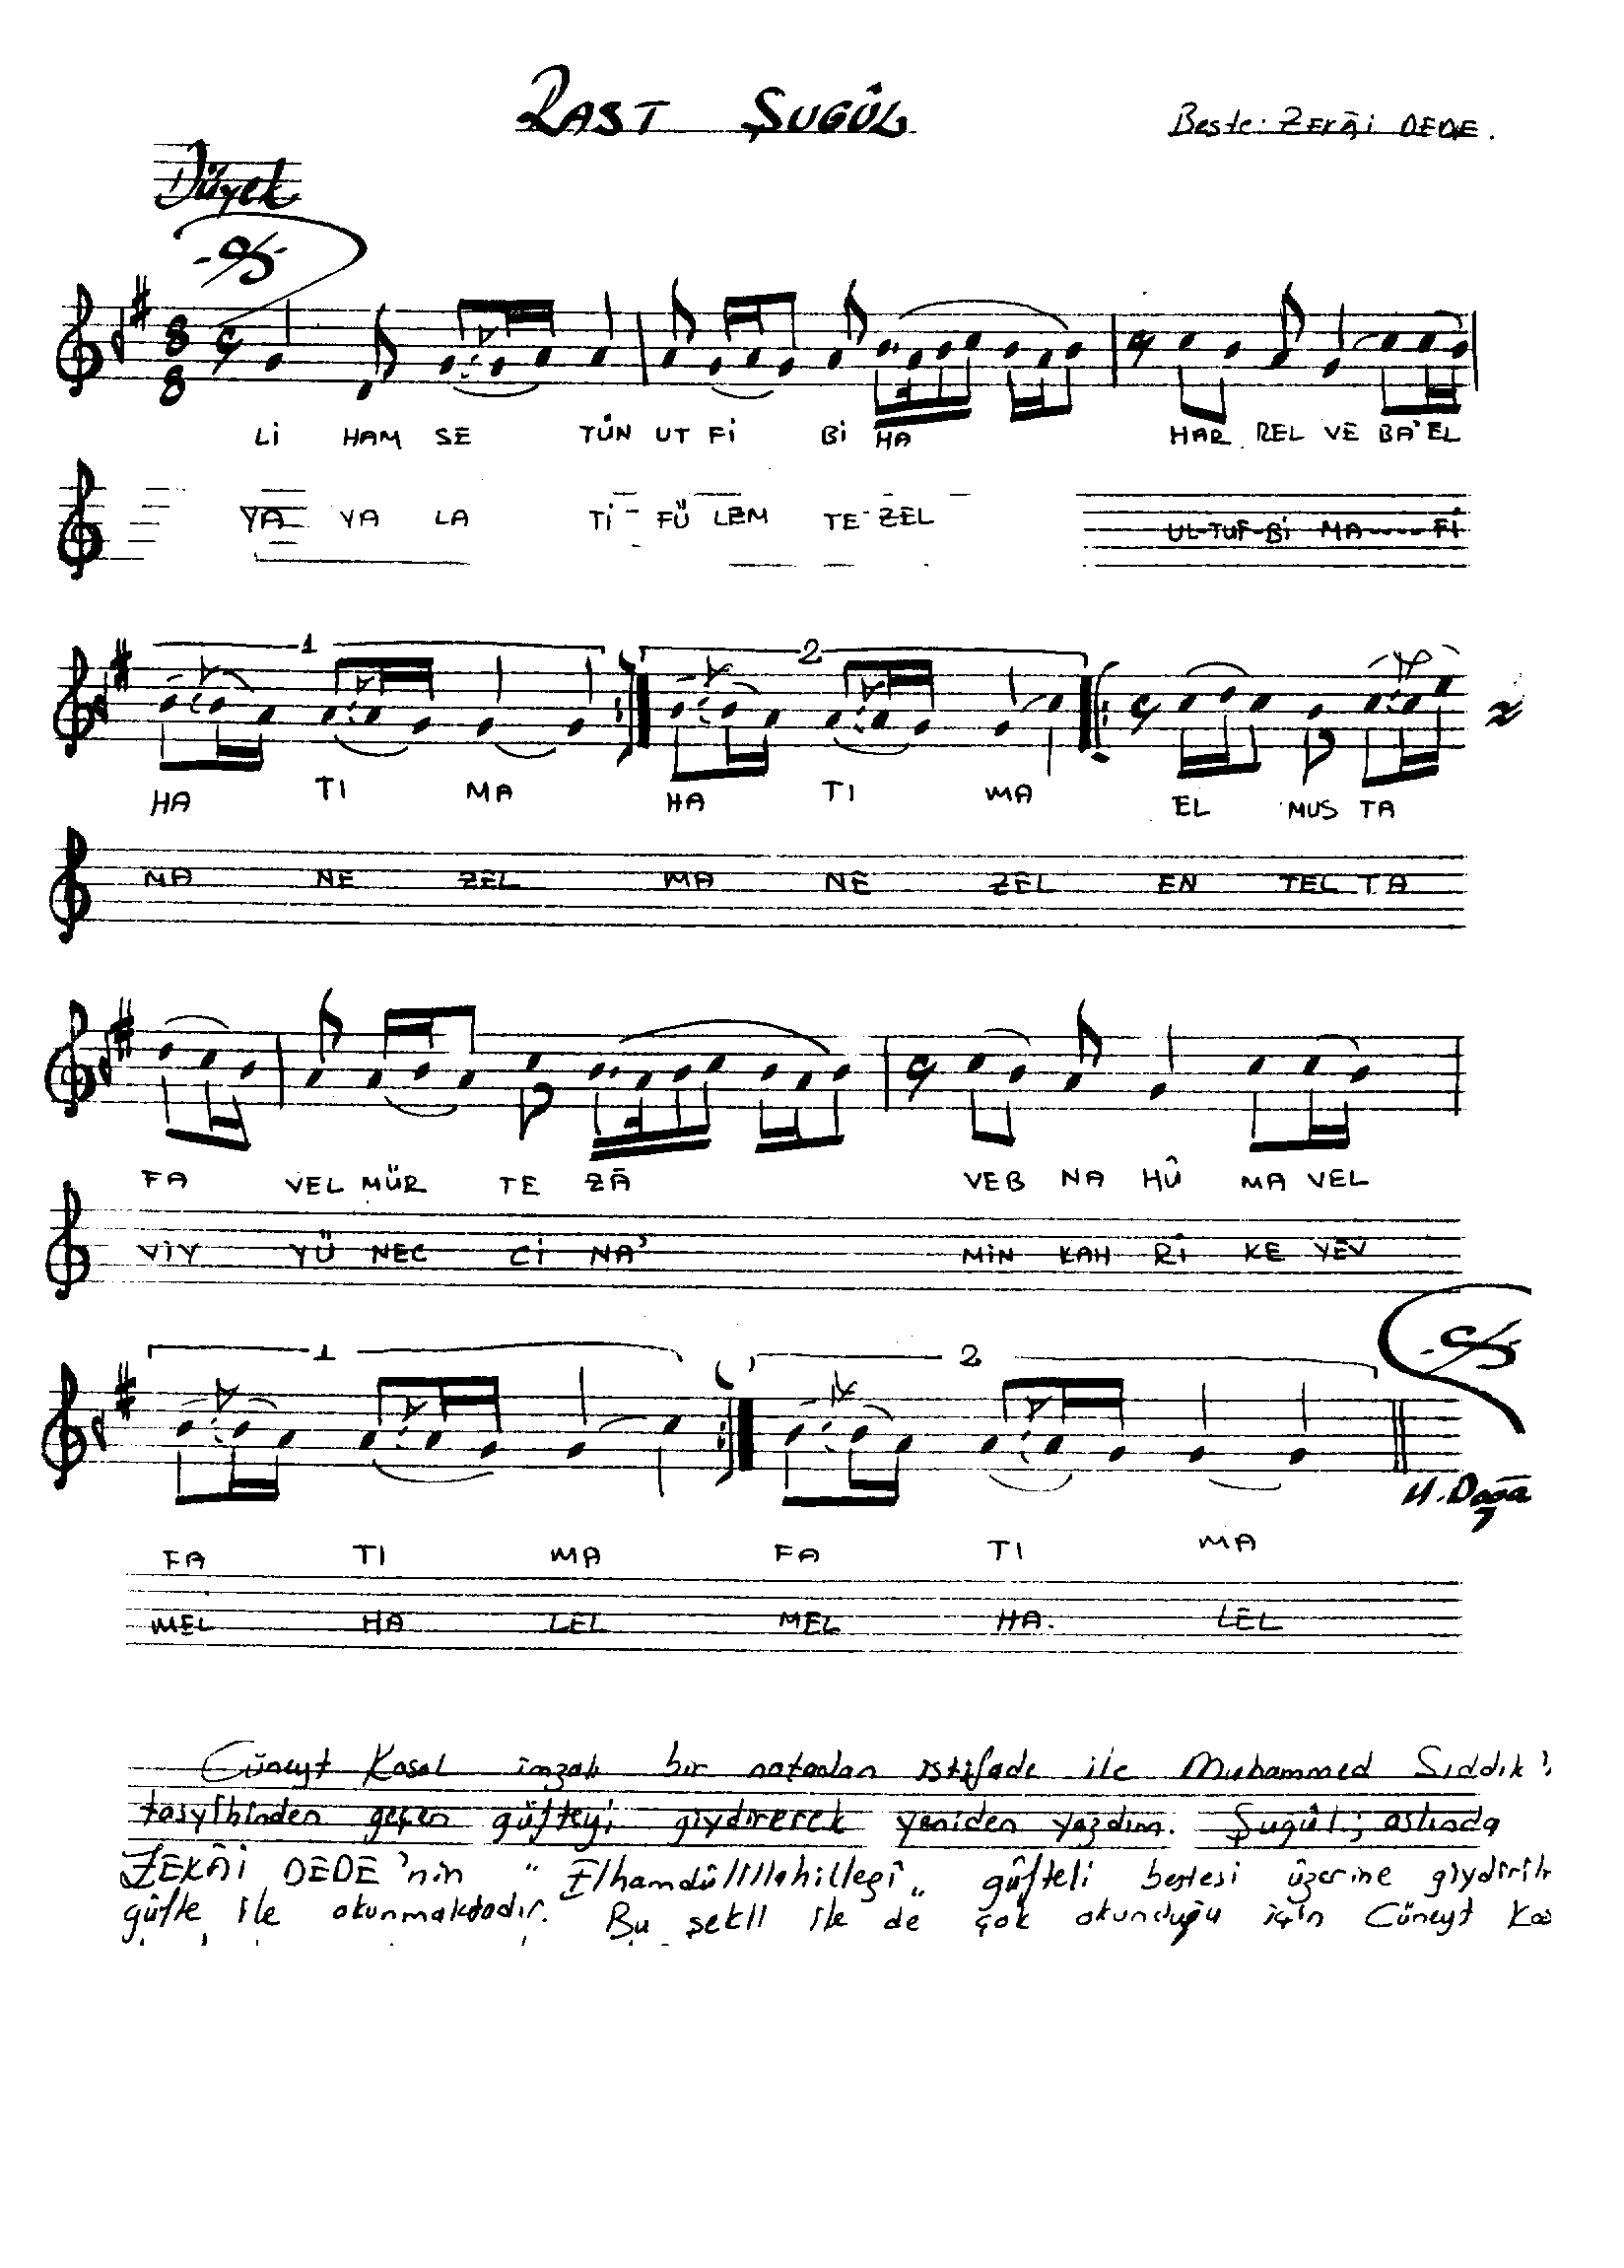 RAST ŞUGÛL
Beste: ZEKÂİ DEDE.
Düyek
8
8
Lİ HAM SE TÜN UT Fİ Bİ HA HAR REL VE BA' EL
YA YA LA Tİ - FÜ LEM TE - ZEL UL-TUF-Bİ MA----Fİ
1 2
HA TI MA HA TI MA EL MUS TA
MA NE ZEL MA NE ZEL EN TEL TA
FA VEL MÜR TE ZÂ VEB NA HÛ MA VEL
VİY YÜ NEC Cİ NA' MİN KAH Rİ KE YEV
1 2
FA TI MA FA TI MA
MEL HA LEL MEL HA. LEL
Cüneyt Kosal imzalı bir notadan istifade ile Muhammed Sıddık'ı
geçen güfteyi giydirerek yeniden yazdım. Şugûl; aslında
ZEKÂİ DEDE'nin " Elhamdülillahillezî „ güfteli bestesi üzerine
güfte ile okunmaktadır. Bu şekil ile de çok okunduğu için Cüneyt